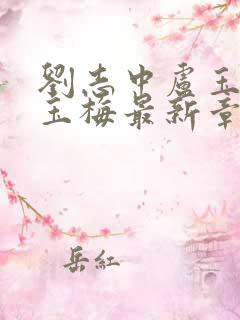 劉志中盧玉
玉梅最新章
岳紅